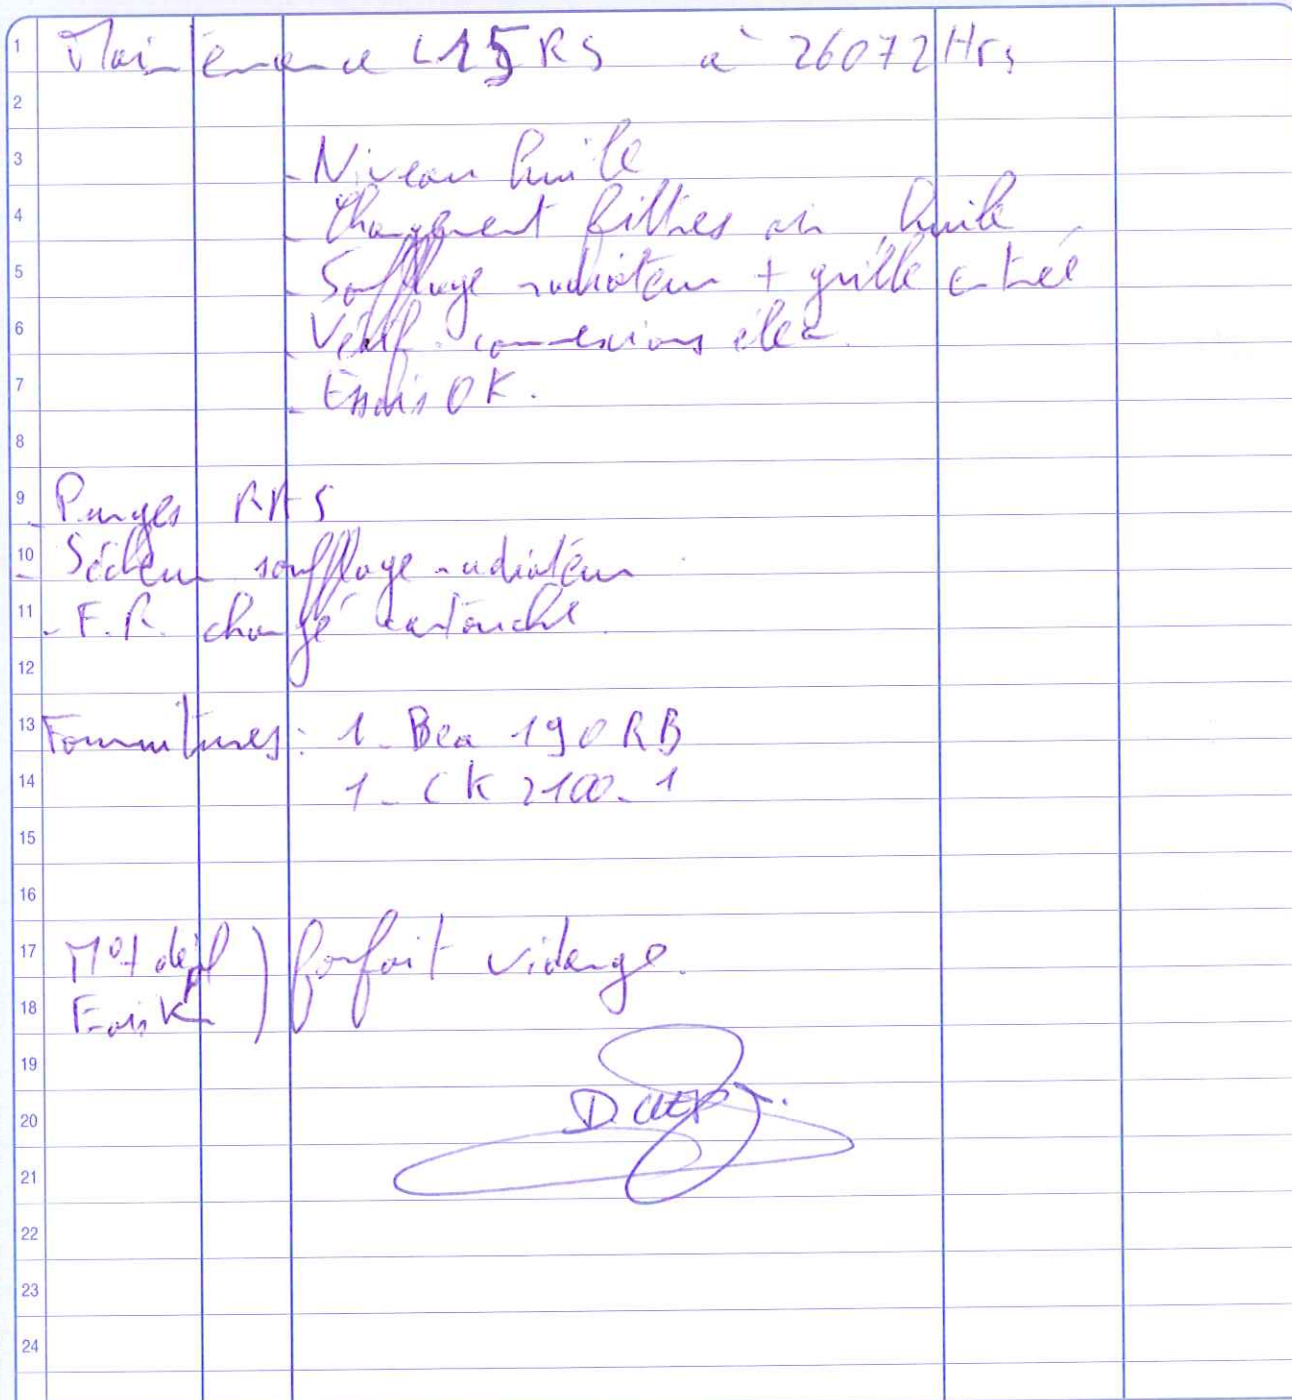 1 Maintenance L15RS à 26072 Hrs
2
3 - Niveau huile
4 - Changement filtres air, huile
5 - Soufflage radiateur + grille entrée
6 - Vérif. connexions élec.
7 - Essais OK.
8
9 - Purges RAS
10 - Sécheur soufflage radiateur
11 - F.R. changé cartouche.
12
13 Fournitures : 1 - Bea 190 RB
14 1 - CK 2100-1
15
16
17 M° + dépl ) forfait vidange.
18 Frais K )
19
20
21
22
23
24